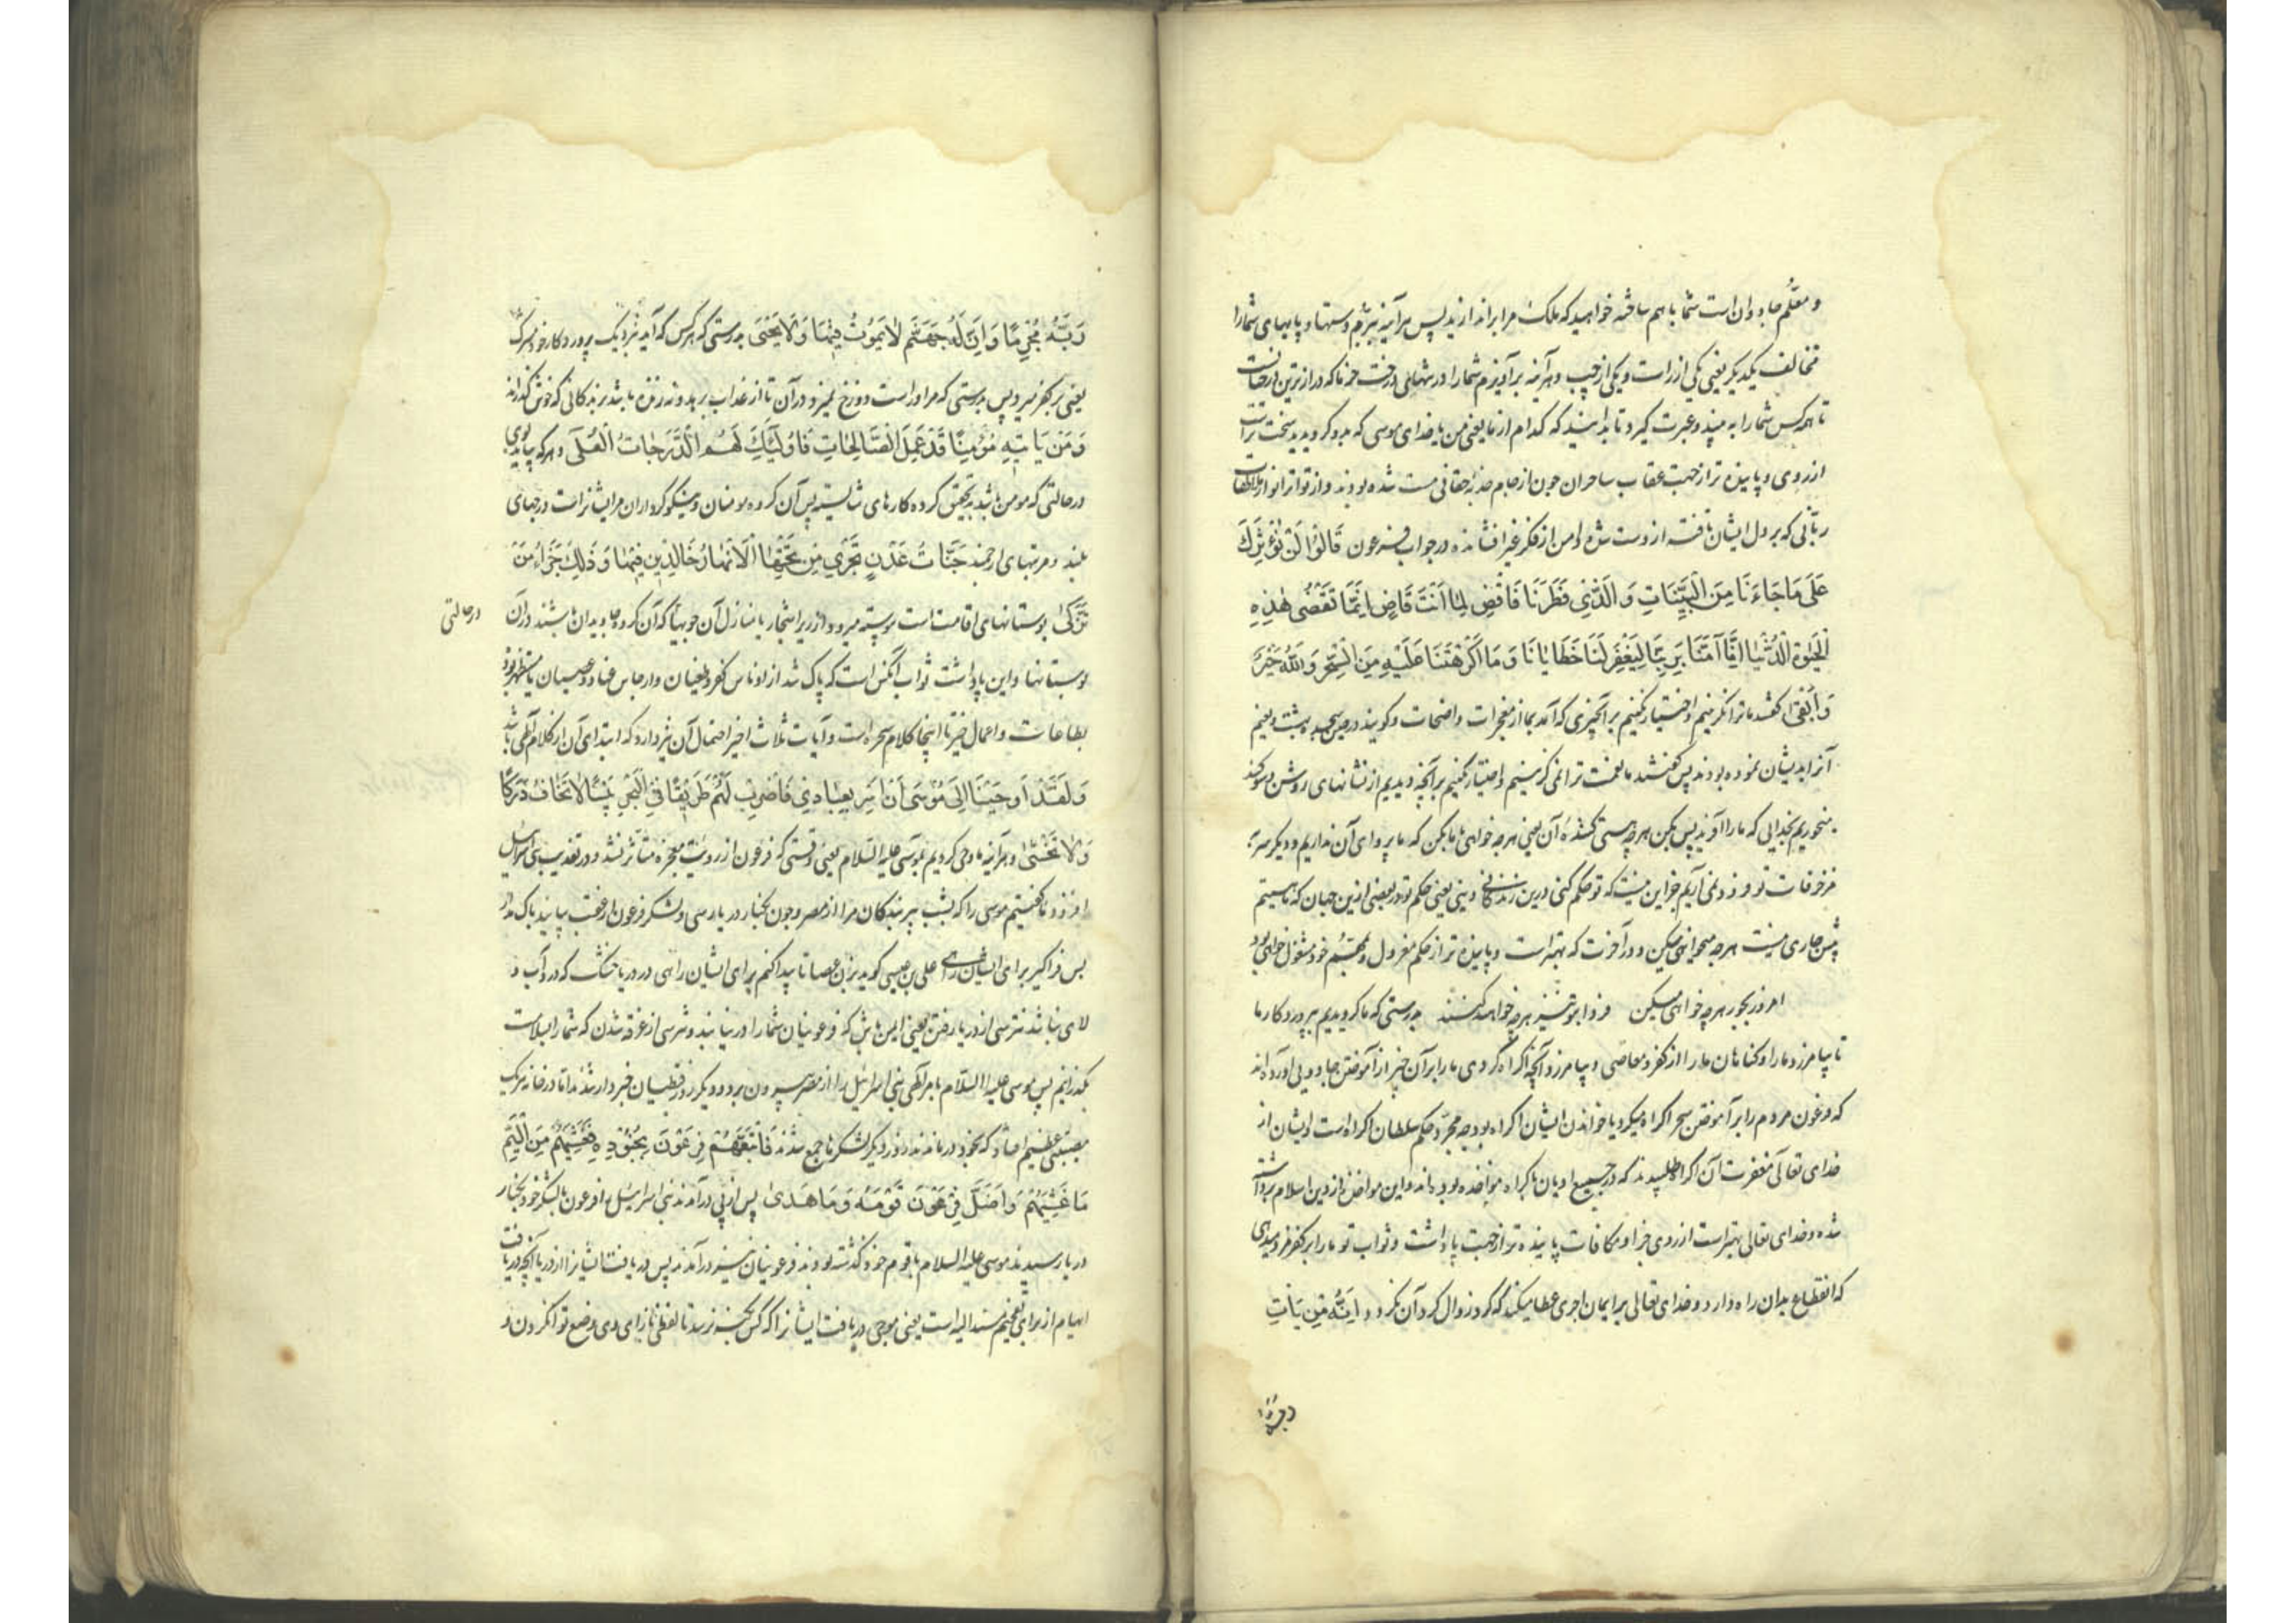 و معلّم جادوان است شما با هم ساخته خواهید که ملک مرا براندازید پس هرآینه ببرم دستها و پایهای شما را
مخالف یکدیگر یعنی یکی از راست و یکی از چپ و هرآینه برآویزم شما را در تنهای درخت خرما که درازترین درختانست
تا همه کس شما را به بیند و عبرت گیرد و تا بدانید که کدام از ما یعنی من یا خدای موسی که بدو گرویدید سخت تراست
از روی و پاینده تر از جهت عقاب ساحران چون از جام جذبه حقانی مست شده بودند و از تواتر انوار ملاطفات
ربّانی که بر دل ایشان تافته از دست شده دامن از فکر غیر افشانده در جواب فرعون قَالُوا لَنْ نُؤْثِرَكَ
عَلَى مَا جَاءَنَا مِنَ الْبَيِّنَاتِ وَ الَّذِي فَطَرَنَا فَاقْضِ مَا أَنْتَ قَاضٍ اِنَّمَا تَقْضِی هٰذِهِ
الْحَيٰوةَ الدُّنْيَا اِنَّا آمَنَّا بِرَبِّنَا لِيَغْفِرَ لَنَا خَطَايَانَا وَ مَا أَكْرَهْتَنَا عَلَيْهِ مِنَ السِّحْرِ وَاللّٰهُ خَيْرٌ
وَ أَبْقَى گفتند ما ترا نگزینیم و اختیار نکنیم بر آنچیزی که آمد بما از معجزات واضحات و گویند در حین سجده بهشت و نعیم
آنرا بدیشان نموده بودند پس گفتند ما نعمت ترا نمی گزینیم و اختیار نکنیم بر آنچه دیدیم از نشانهای روشن و سوگند
میخوریم بخدایی که ما را آفرید پس بکن هرچه هستی کننده آن یعنی هرچه خواهی با ما بکن که ما پروای آن نداریم و دیگر سر به
مزخرفات تو فرود نمی آریم جز این نیست که تو حکم کنی درین زندگانی دنیی یعنی حکم تو در بعضی ازین جهان که ما هستیم
پیش جاری نیست هرچه میخواهی میکن و در آخرت که بهتر است و پاینده تر از حکم معزول و بهتم خود مشغول خواهی بود
امروز بجور هرچه خواهی میکن فردا بتو نیز هرچه خواهند کنند بدرستی که ما گرویدیم بپروردگار ما
تا بیامرزد ما را و گناهان ما را از کفر و معاصی و بیامرزد آنچه اکراه کردی ما را بر آن چیز از آموختن جادویی آورده اند
که فرعون مردم را بر آموختن سحر اکراه میکرد یا خواندن ایشان اکراه بود چه مجرّد حکم سلطان اکراه است ایشان از
خدای تعالی مغفرت آن اکراه طلبیدند که در جمیع ادیان باکراه مواخذه بوده اند و این مواخذه از دین اسلام برداشته
شده و خدای تعالی بهتر است از روی جزا و مکافات پاینده تر از جهت پاداشت و ثواب تو ما را بر کفر مزد میدهی
که انقطاع بدان راه دارد و خدای تعالی بر ایمان اجری عطا میکند که گرد زوال گرد آن نگردد اِنَّهُ مَنْ يَاْتِ
رَبَّهُ مُجْرِمًا فَاِنَّ لَهُ جَهَنَّمَ لَا يَمُوْتُ فِيْهَا وَلَا يَحْيَى بدرستی که هرکس که آید بنزدیک پروردگار خود مشرک
یعنی بر کفر میرد پس بدرستی که مر او راست دوزخ نمیرد در آن تا از عذاب برهد و نه زنده باشد بزندگانی که خوش گذراند
وَ مَنْ يَاْتِهِ مُؤْمِنًا قَدْ عَمِلَ الصَّالِحَاتِ فَاُولٰئِكَ لَهُمُ الدَّرَجَاتُ الْعُلَى و هرکه بیاید بوی
در حالتی که مومن باشد بتحقیق کرده کارهای شایسته پس آن گروه مومنان و نیکوکرداران مر ایشانراست درجهای
بلند و مرتبهای ارجمند جَنَّاتُ عَدْنٍ تَجْرِي مِنْ تَحْتِهَا الْاَنْهَارُ خَالِدِيْنَ فِيْهَا وَ ذٰلِكَ جَزَاءُ مَنْ
تَزَكّٰى بوستانهای اقامت است پیوسته میرود از زیر اشجار یا منازل آن جویها که آن گروه جاویدان باشند در آن
در حالتی
بوستانها و این پاداشت ثواب آنکس است که پاک شد از ادناس کفر و طغیان و ارجاس عناد و عصیان یا متطهر بود
بطاعات و اعمال خیر تا اینجا کلام سحره است و آیات ثلاث اخیر احتمال آن نیز دارد که ابتدای آن از کلام الهی باشد
وَلَقَدْ اَوْحَيْنَا اِلَى مُوْسَى اَنْ اَسْرِ بِعِبَادِي فَاضْرِبْ لَهُمْ طَرِيْقًا فِي الْبَحْرِ يَبَسًا لَا تَخَافُ دَرَكًا
وَلَا تَخْشٰى و هرآینه ما وحی کردیم بموسی علیه السلام یعنی وقتی که فرعون از رویت معجزه متاثر نشد و در تعذیب بنی اسرائیل
افزود ما گفتیم موسی را که بشب ببر بندگان مرا از مصر و چون بکنار دریا رسی و لشکر فرعون از عقب بیایند باک مدار
پس فراگیر برای ایشان راهی علی بن عیسی گوید بزن عصا تا پیدا کنم برای ایشان راهی در دریا خشک که درو آب و
لای نباشد نترسی از دریافتن یعنی ایمن باش که فرعونیان شما را درنیابند و نترسی از غرقه شدن که شما را بسلامت
بگذرانیم پس موسی علیه السلام بامر الهی بنی اسرائیل را از مصر بیرون برد و دیگر روز قبطیان خبردار شدند اما در خانه هریک
مصیبتی عظیم افتاد که بخود درماندند روز دیگر لشکرها جمع شدند فَاَتْبَعَهُمْ فِرْعَوْنَ بِجُنُوْدِهِ فَغَشِيَهُمْ مِنَ الْيَمِّ
مَا غَشِيَهُمْ وَ اَضَلَّ فِرْعَوْنَ قَوْمَهُ وَ مَا هَدٰى پس از پی درآمدند بنی اسرائیل را فرعون با لشکر خود بکنار
دریا رسیدند موسی علیه السلام با قوم خود گذشته بودند فرعونیان نیز درآمدند پس دریافت ایشانرا از دریا آنچه دریافت
ابهام از برای تفخیم مسند الیه است یعنی موجی دریافت ایشانرا که کس بکنه نرسد تا لفظی بازای وی وضع تو انکردن و